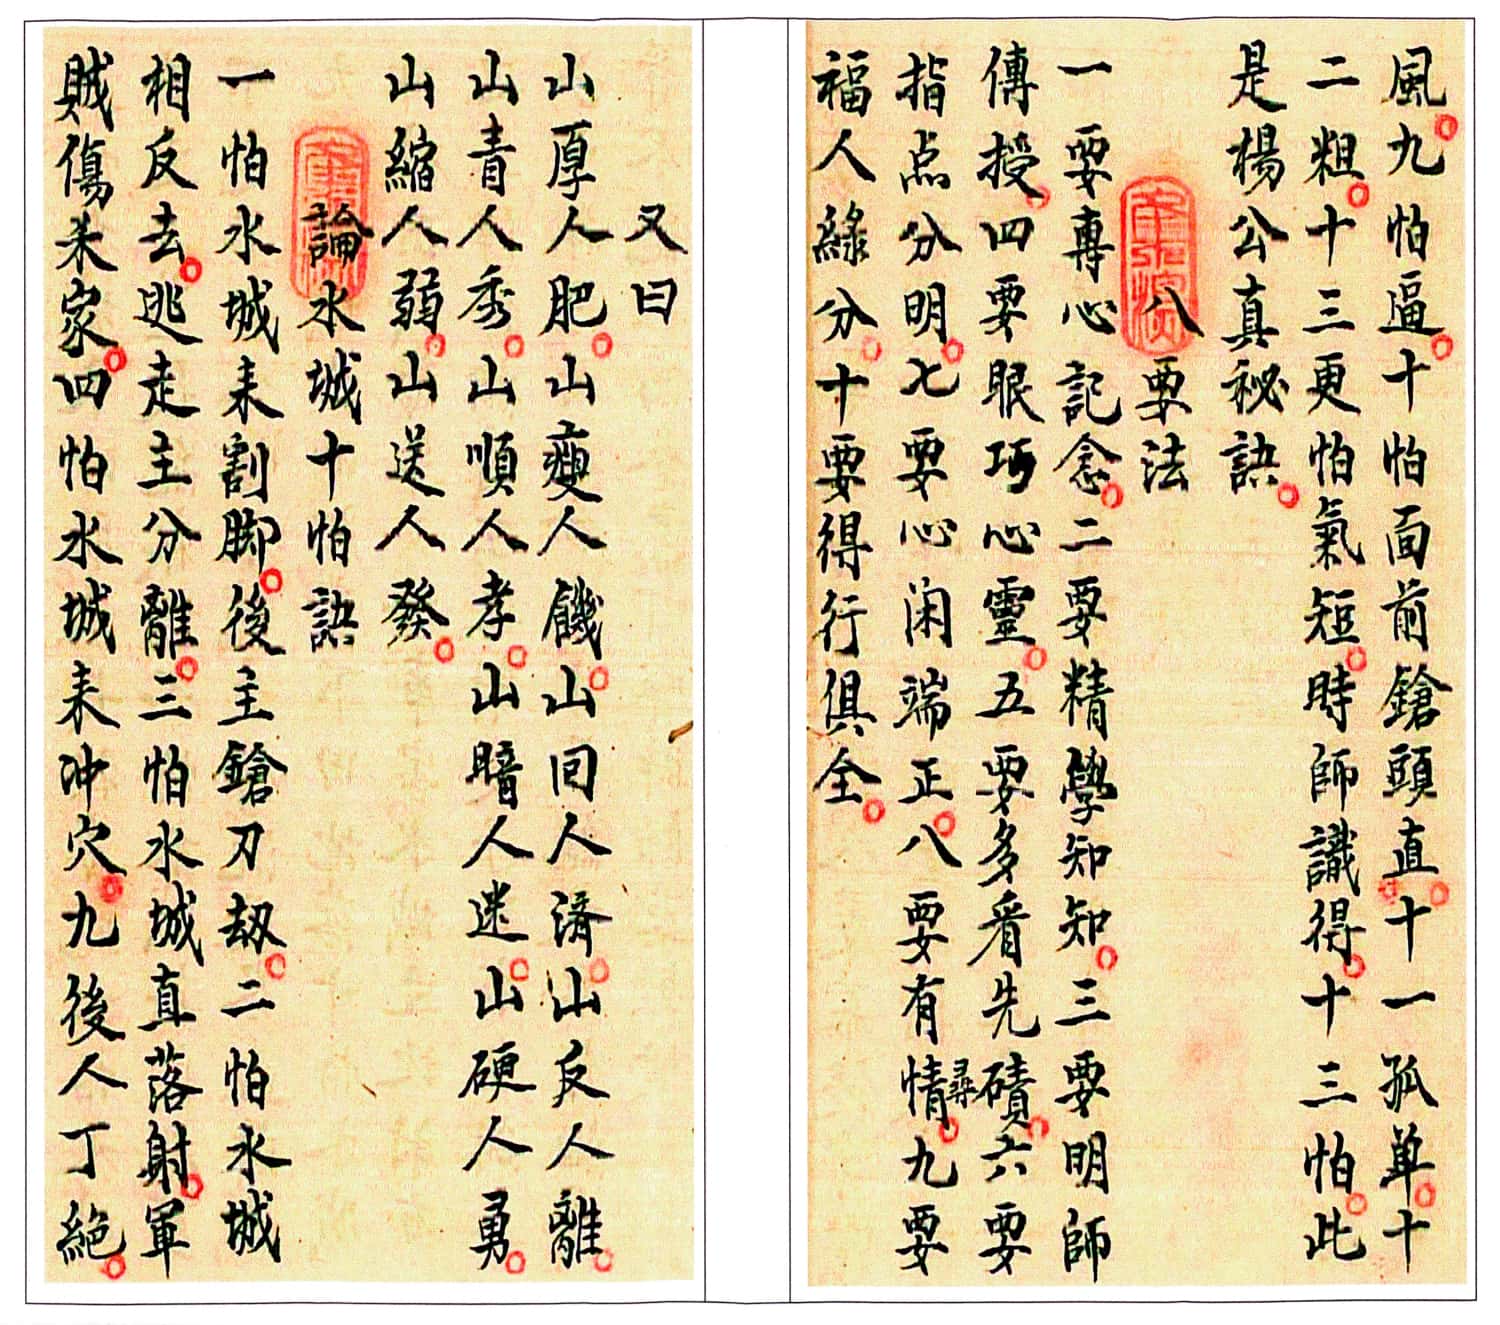 風九怕逼十怕面前鎗頭直十一孤单十
二粗十三更怕氣短時師識得十三怕此
是楊公真秘訣
八要法
一要專心記念二要精學知知三要明師
傳授四要眼巧心靈五要多看先磧六要
指点分明七要心闲端正八要有情尋九要
福人緣分十要得行俱全
又曰
山厚人肥山瘦人饑山回人済山反人離
山青人秀山順人孝山暗人迷山硬人勇
山縮人弱山送人發
論水城十怕訣
一怕水城耒割脚後主鎗刀劫二怕水城
相反去逃走主分離三怕水城直落射軍
賊傷耒家四怕水城耒冲穴九後人丁絕